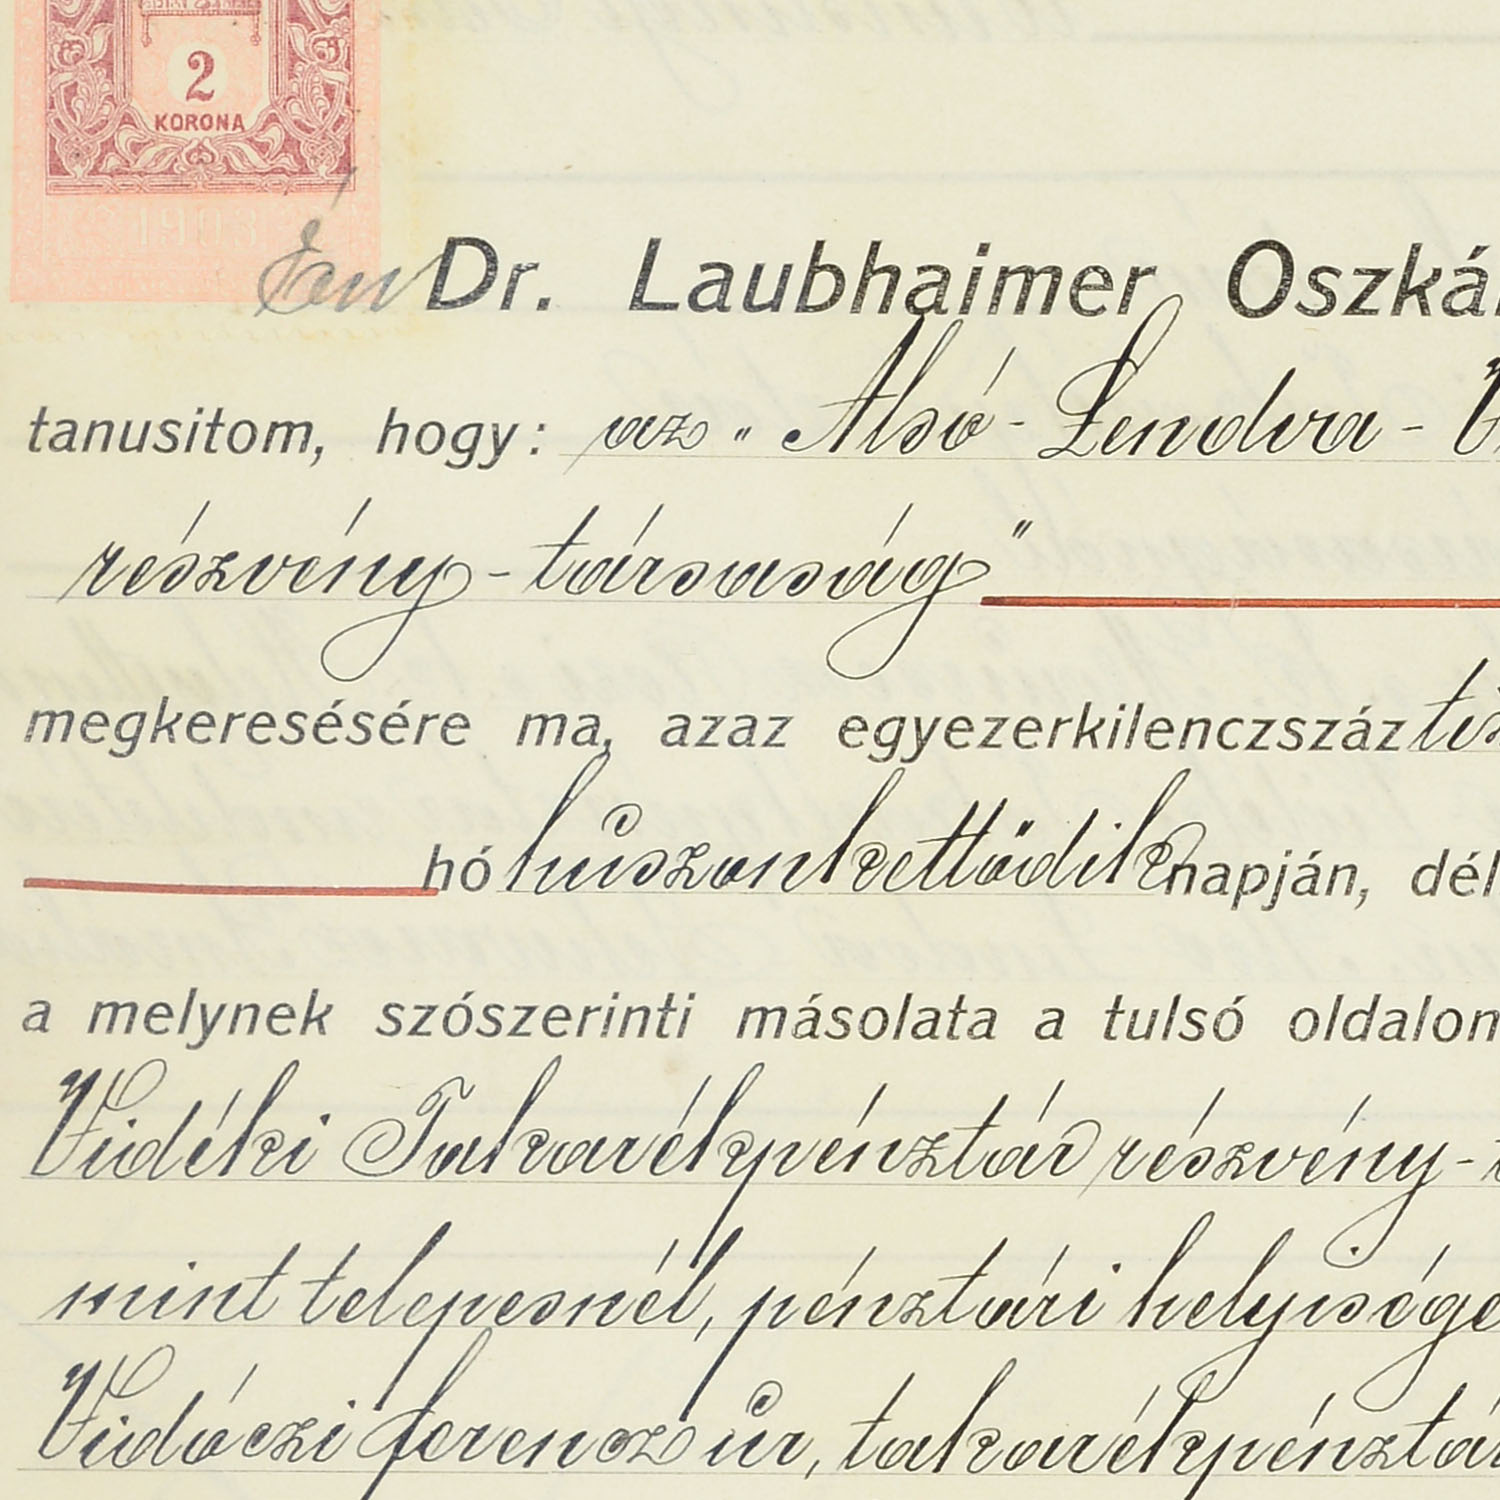 2
KORONA
1903
Én Dr. Laubhaimer Oszká
tanusitom, hogy: az „Alsó-Lendva-
részvény-társaság"
megkeresésére ma, azaz egyezerkilenczszáz
hó huszonkettődik napján, dél
a melynek szószerinti másolata a tulsó oldalon
Vidéki Takarékpénztár részvény-
mint telepesnél, pénztári helyisége
Vidóczi Ferencz úr, takarékpénztá